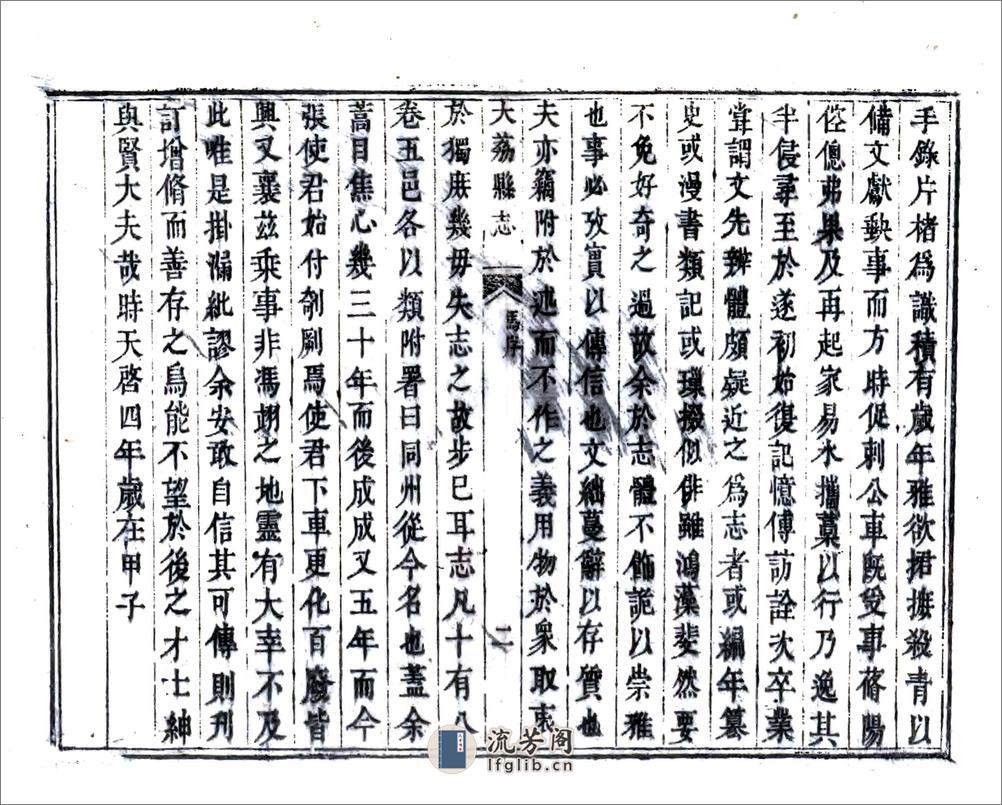 手錄片楮爲識積有歲年雅欲捃摭殺青以
備文獻軼事而方時促刺公車旣受事脩陽
倥傯弗果及再起家易水攜藁以行乃逸其
半侵尋至於遂初始復記憶傳訪詮次卒業
嘗謂文先辨體頗疑近之爲志者或編年纂
史或漫書類記或璅掇似俳雖鴻藻斐然要
不免好奇之過故余於志體不飾詭以崇雅
也事必攷實以傳信也文絀蔓辭以存質也
夫亦竊附於述而不作之義用物於衆取衷
大荔縣志
馬序
二
於獨庶幾毋失志之故步已耳志凡十有八
卷五邑各以類附署曰同州從今名也蓋余
蒿目焦心幾三十年而後成成又五年而今
張使君始付剞劂焉使君下車更化百廢皆
興又襄茲乘事非馮翊之地靈有大幸不及
此唯是掛漏紕謬余安敢自信其可傳則刊
訂增脩而善存之烏能不望於後之才士紳
與賢大夫哉時天啓四年歲在甲子
流芳阁
lfglib.cn